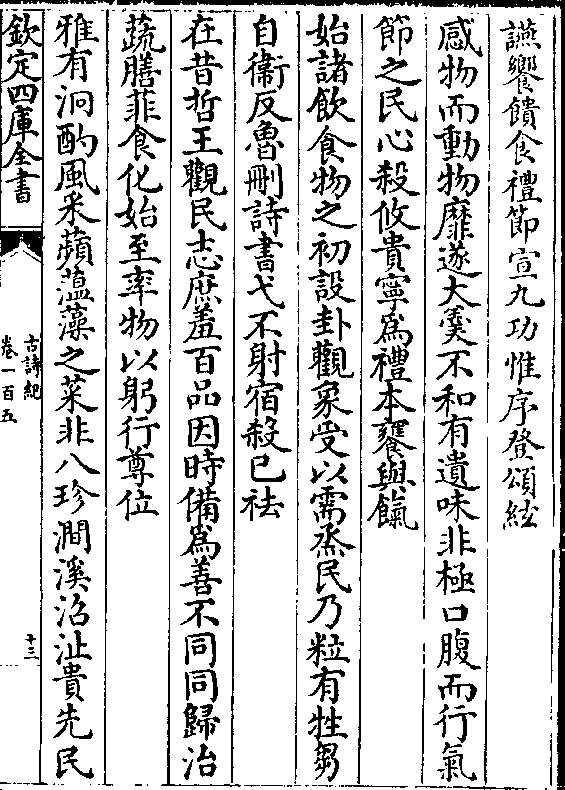 讌饗饋食禮節宣九功惟序登頌絃
感物而動物靡遂大羹不和有遺味非極口腹而行氣
節之民心殺攸貴寧為禮本饔與餼
始諸飲食物之初設卦觀象受以需烝民乃粒有牲芻
自衞反魯刪詩書弋不射宿殺已祛
在昔哲王觀民志庶羞百品因時備為善不同同歸治
蔬膳菲食化始至率物以躬行尊位
雅有泂酌風采蘋蕰藻之菜非八珍澗溪沼沚貴先民
欽定四庫全書
古詩紀
卷一百五
十三